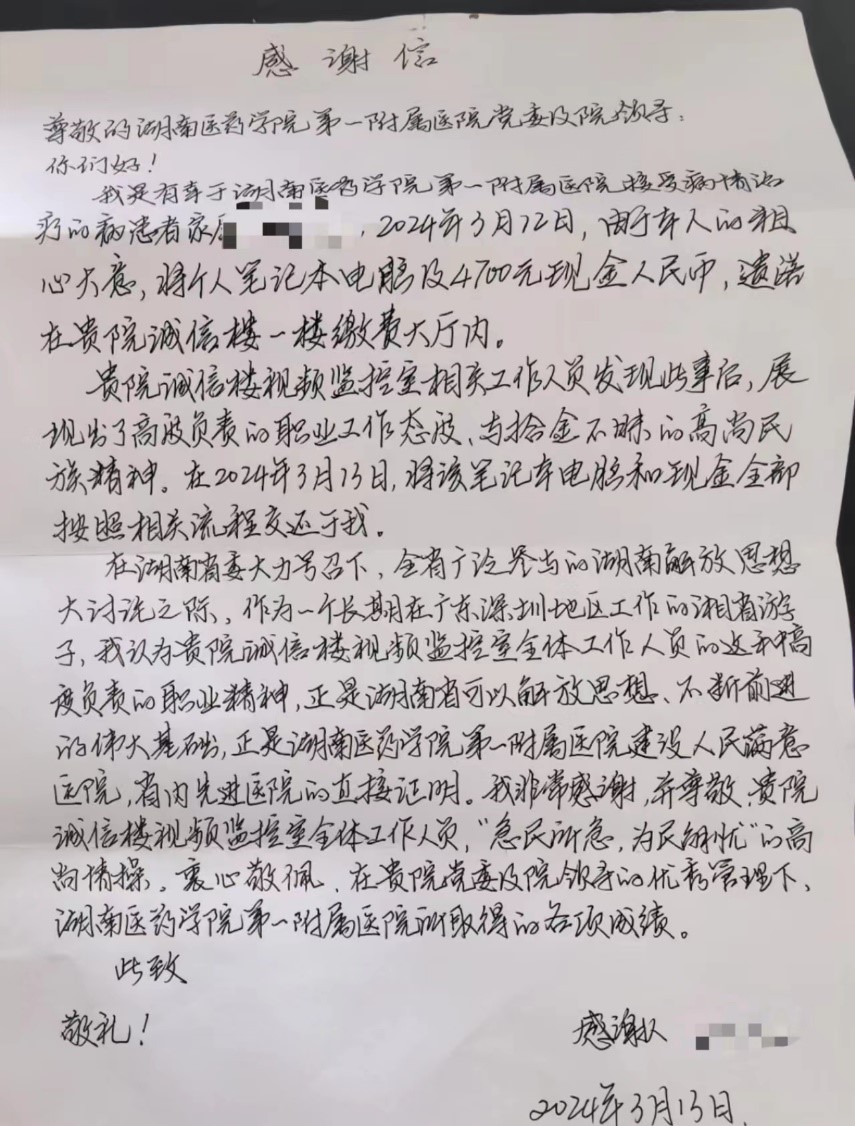 感谢信
尊敬的湖南医药学院第一附属医院党委及院领导:
你们好!
我是有幸于湖南医药学院第一附属医院接受病情治
疗的病患者家属,2024年3月12日,由于本人的粗
心大意,将个人笔记本电脑及4700元现金人民币,遗落
在贵院诚信楼一楼缴费大厅内。
贵院诚信楼视频监控室相关工作人员发现此事后,展
现出了高度负责的职业工作态度、与拾金不昧的高尚民
族精神。在2024年3月13日,将该笔记本电脑和现金全部
按照相关流程交还于我。
在湖南省委大力号召下,全省广泛参与的湖南解放思想
大讨论之际、作为一个长期在广东深圳地区工作的湘省游
子,我认为贵院诚信楼视频监控室全体工作人员的这种高
度负责的职业精神,正是湖南省可以解放思想、不断前进
的伟大基础,正是湖南医药学院第一附属医院建设人民满意
医院,省内先进医院的直接证明。我非常感谢,并尊敬、贵院
诚信楼视频监控室全体工作人员,“急民所急,为民解忧”的高
尚情操。衷心敬佩、在贵院党委及院领导的优秀管理下、
湖南医药学院第一附属医院所取得的各项成绩。
此致
敬礼!
感谢人
2024年3月13日.